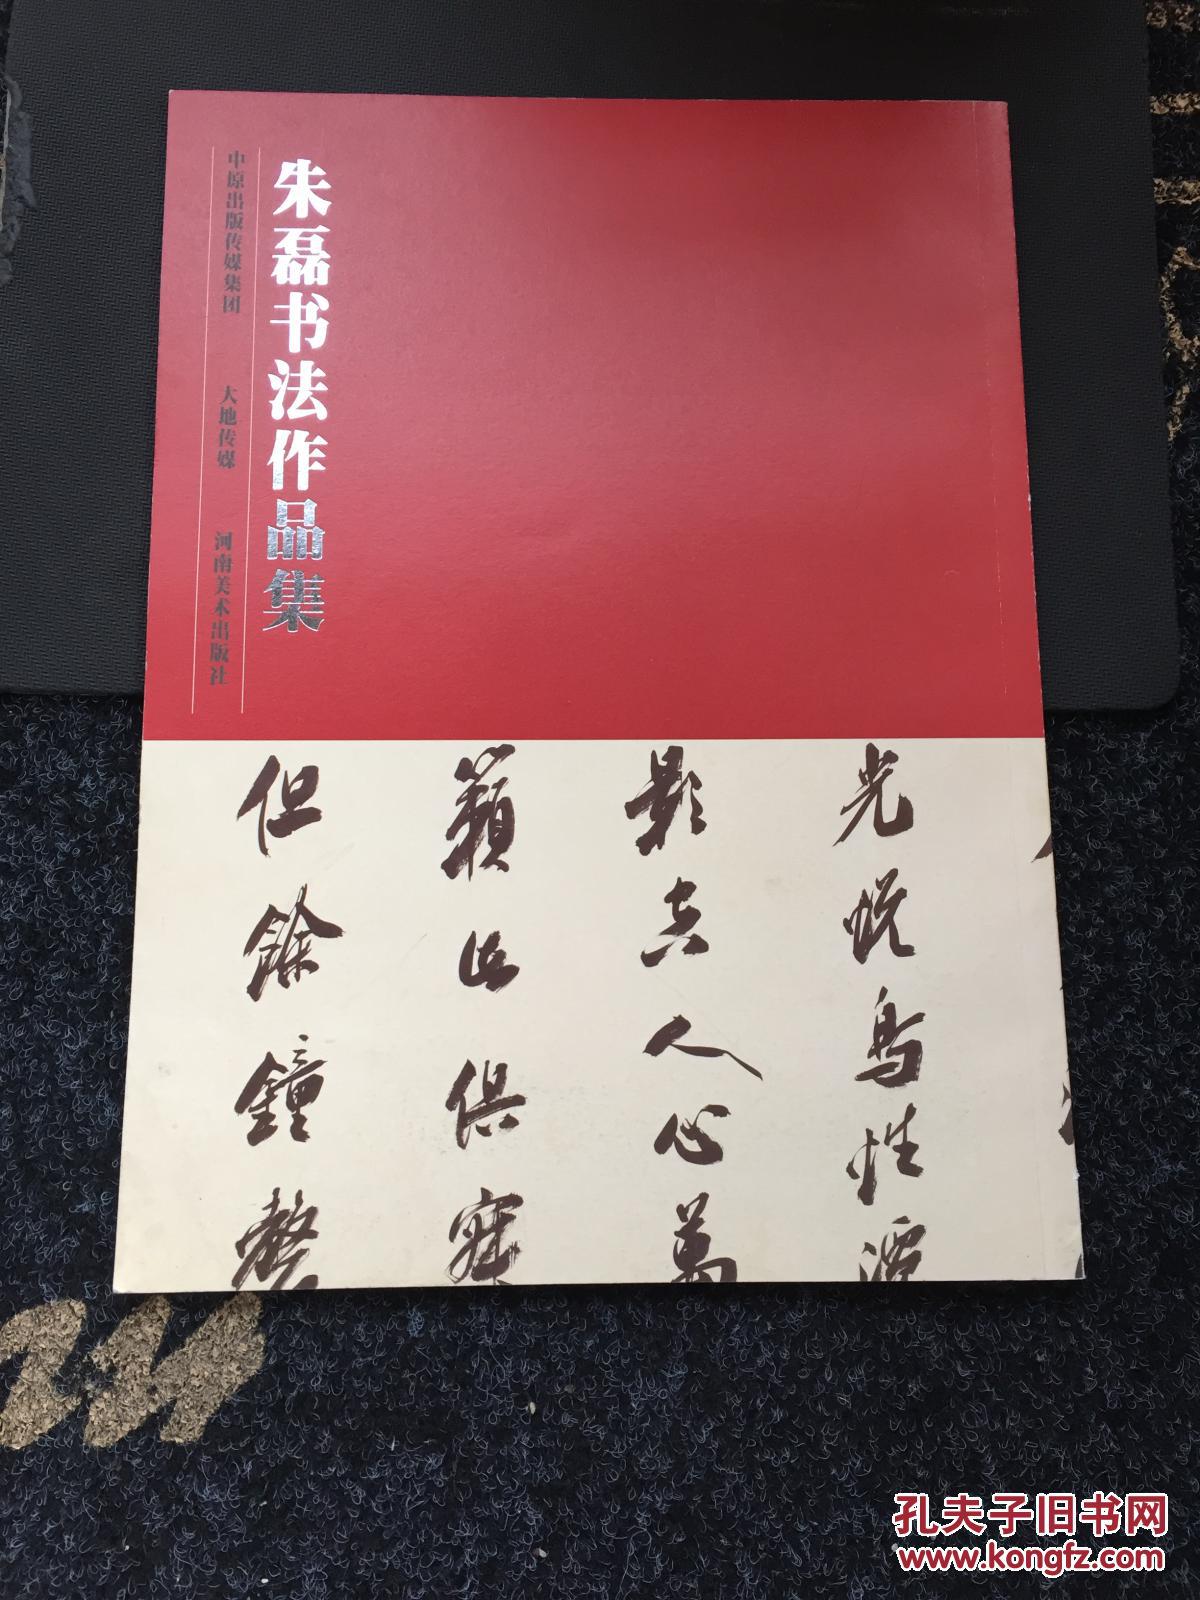 朱磊书法作品集
中原出版传媒集团 大地传媒 河南美术出版社
光悦鸟性潭
影空人心万
籁此俱寂
但余钟磬
孔夫子旧书网
www.kongfz.com